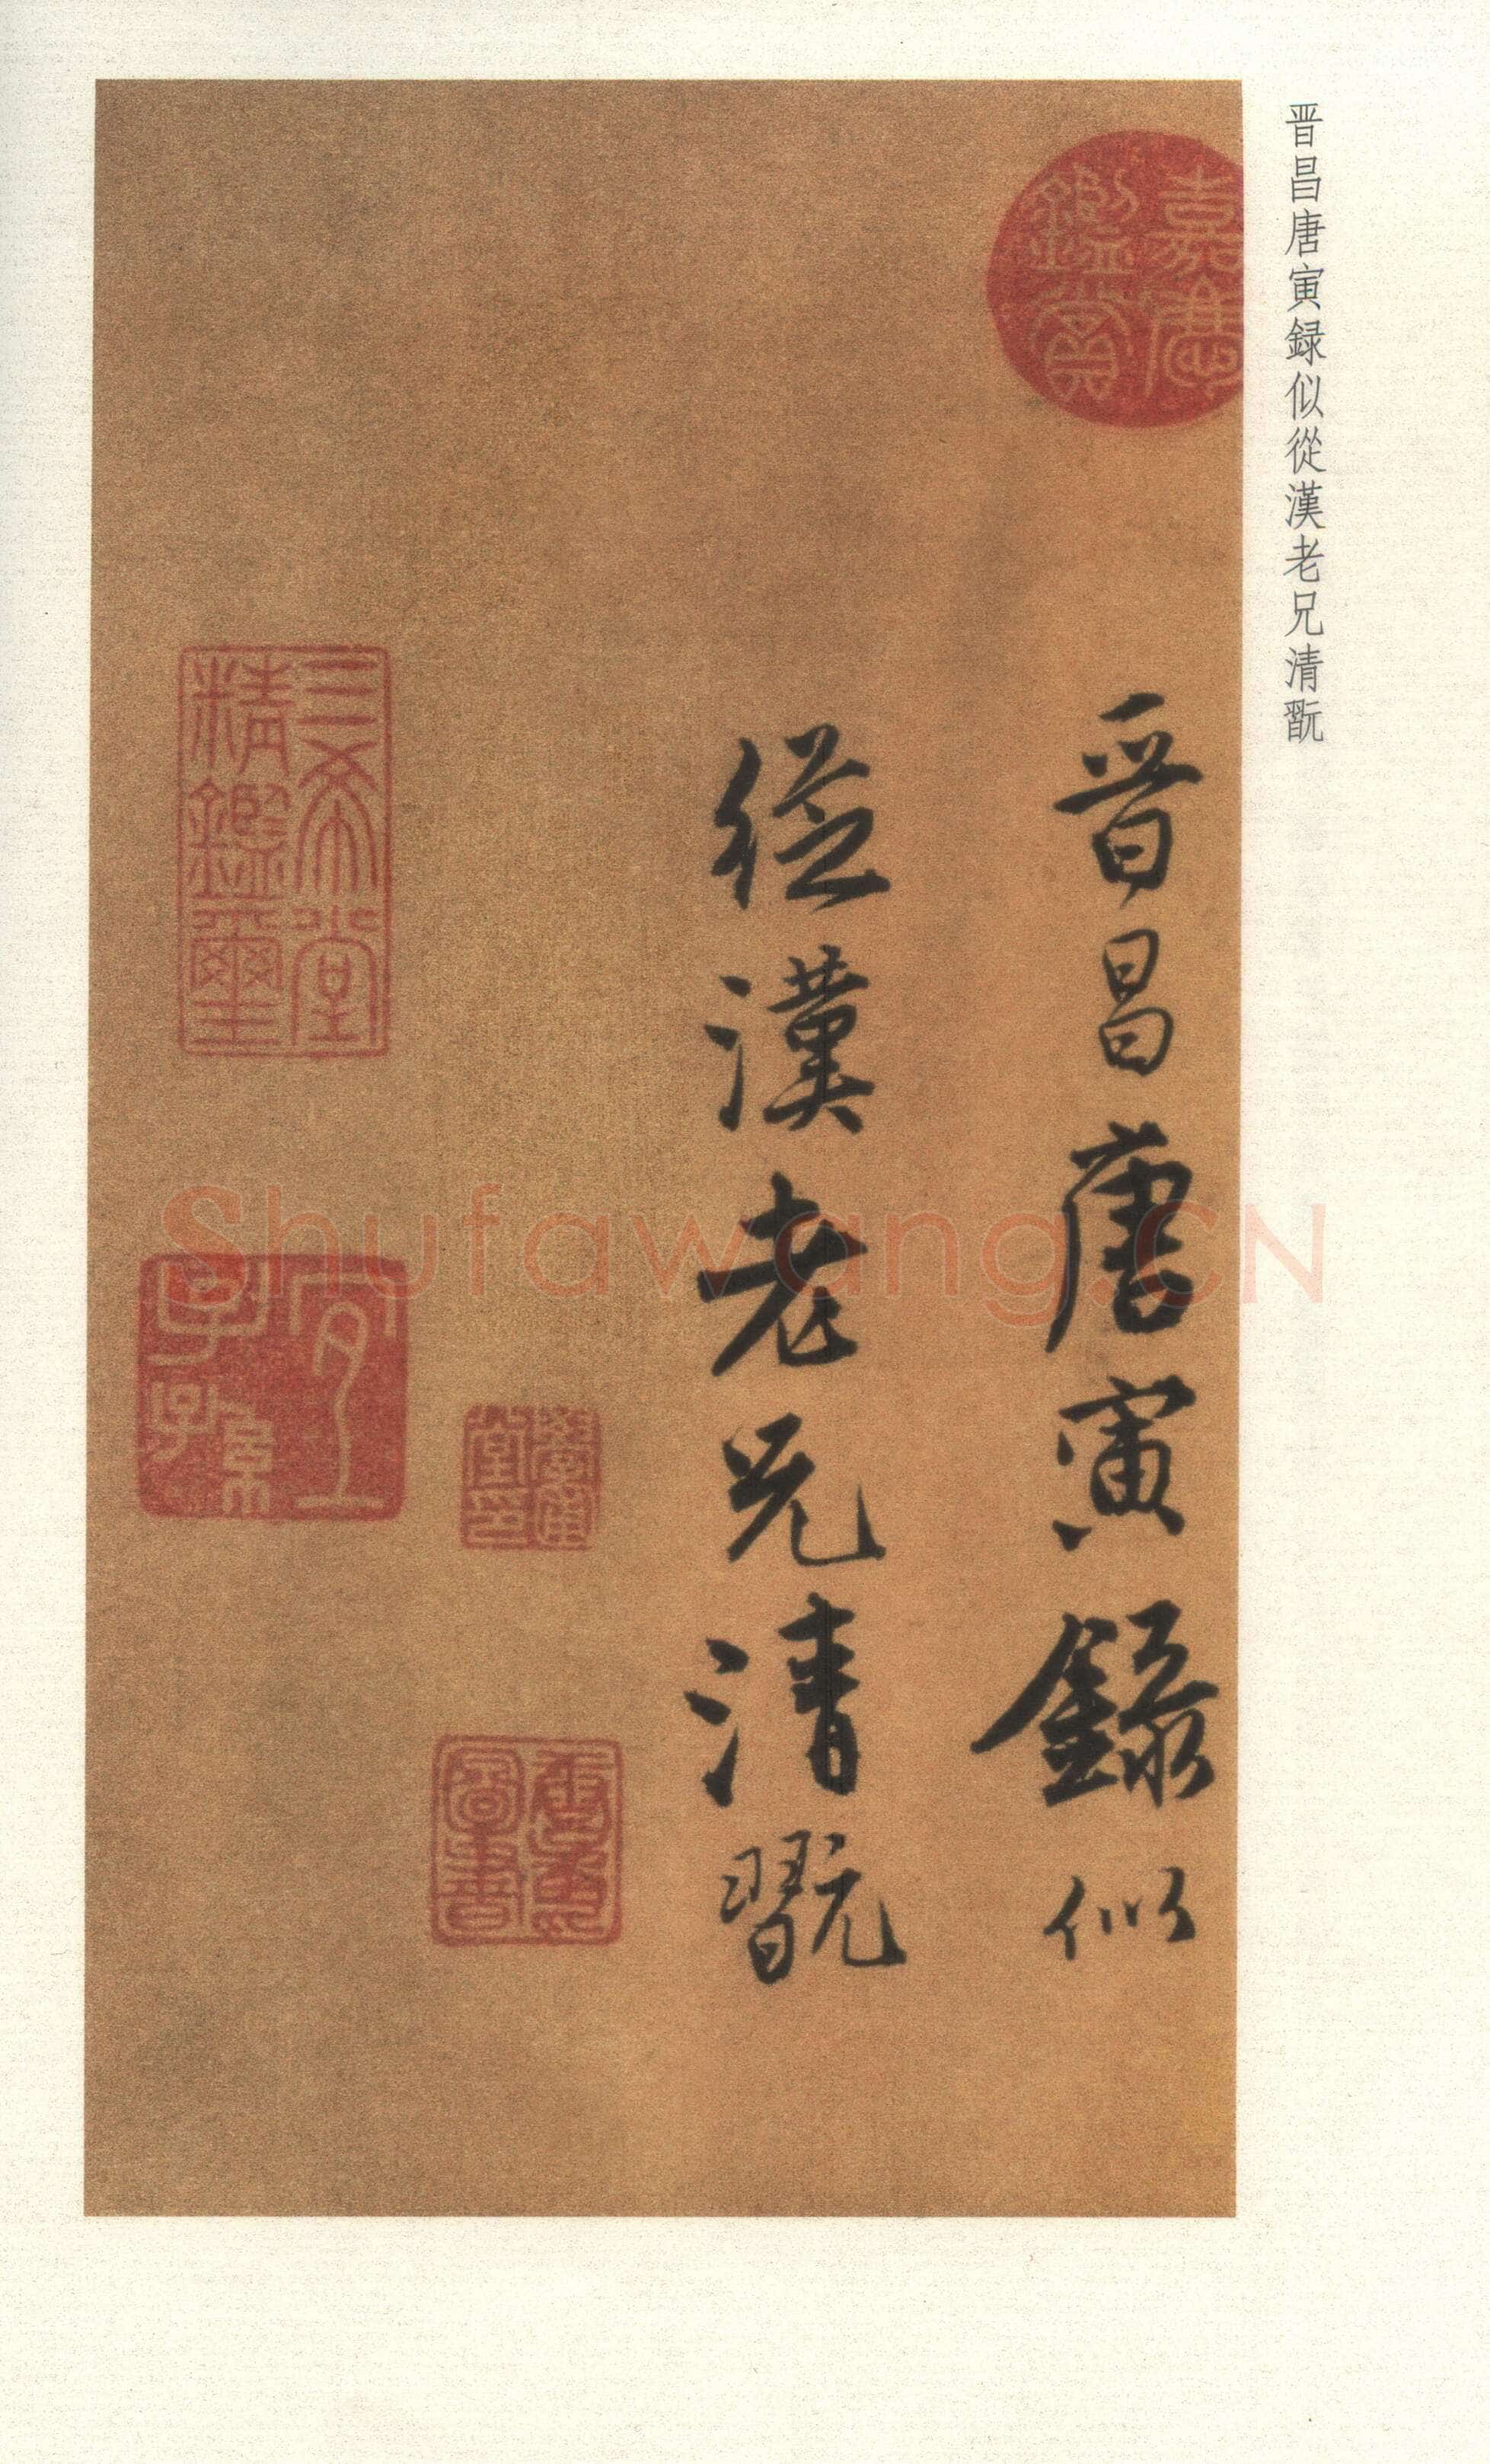 晋昌唐寅録似從漢老兄清翫
嘉慶
鑑賞
晋昌唐寅録似
從漢老兄清翫
三希堂
精鑑璽
宜
子孫
圖書
Shufawang.CN